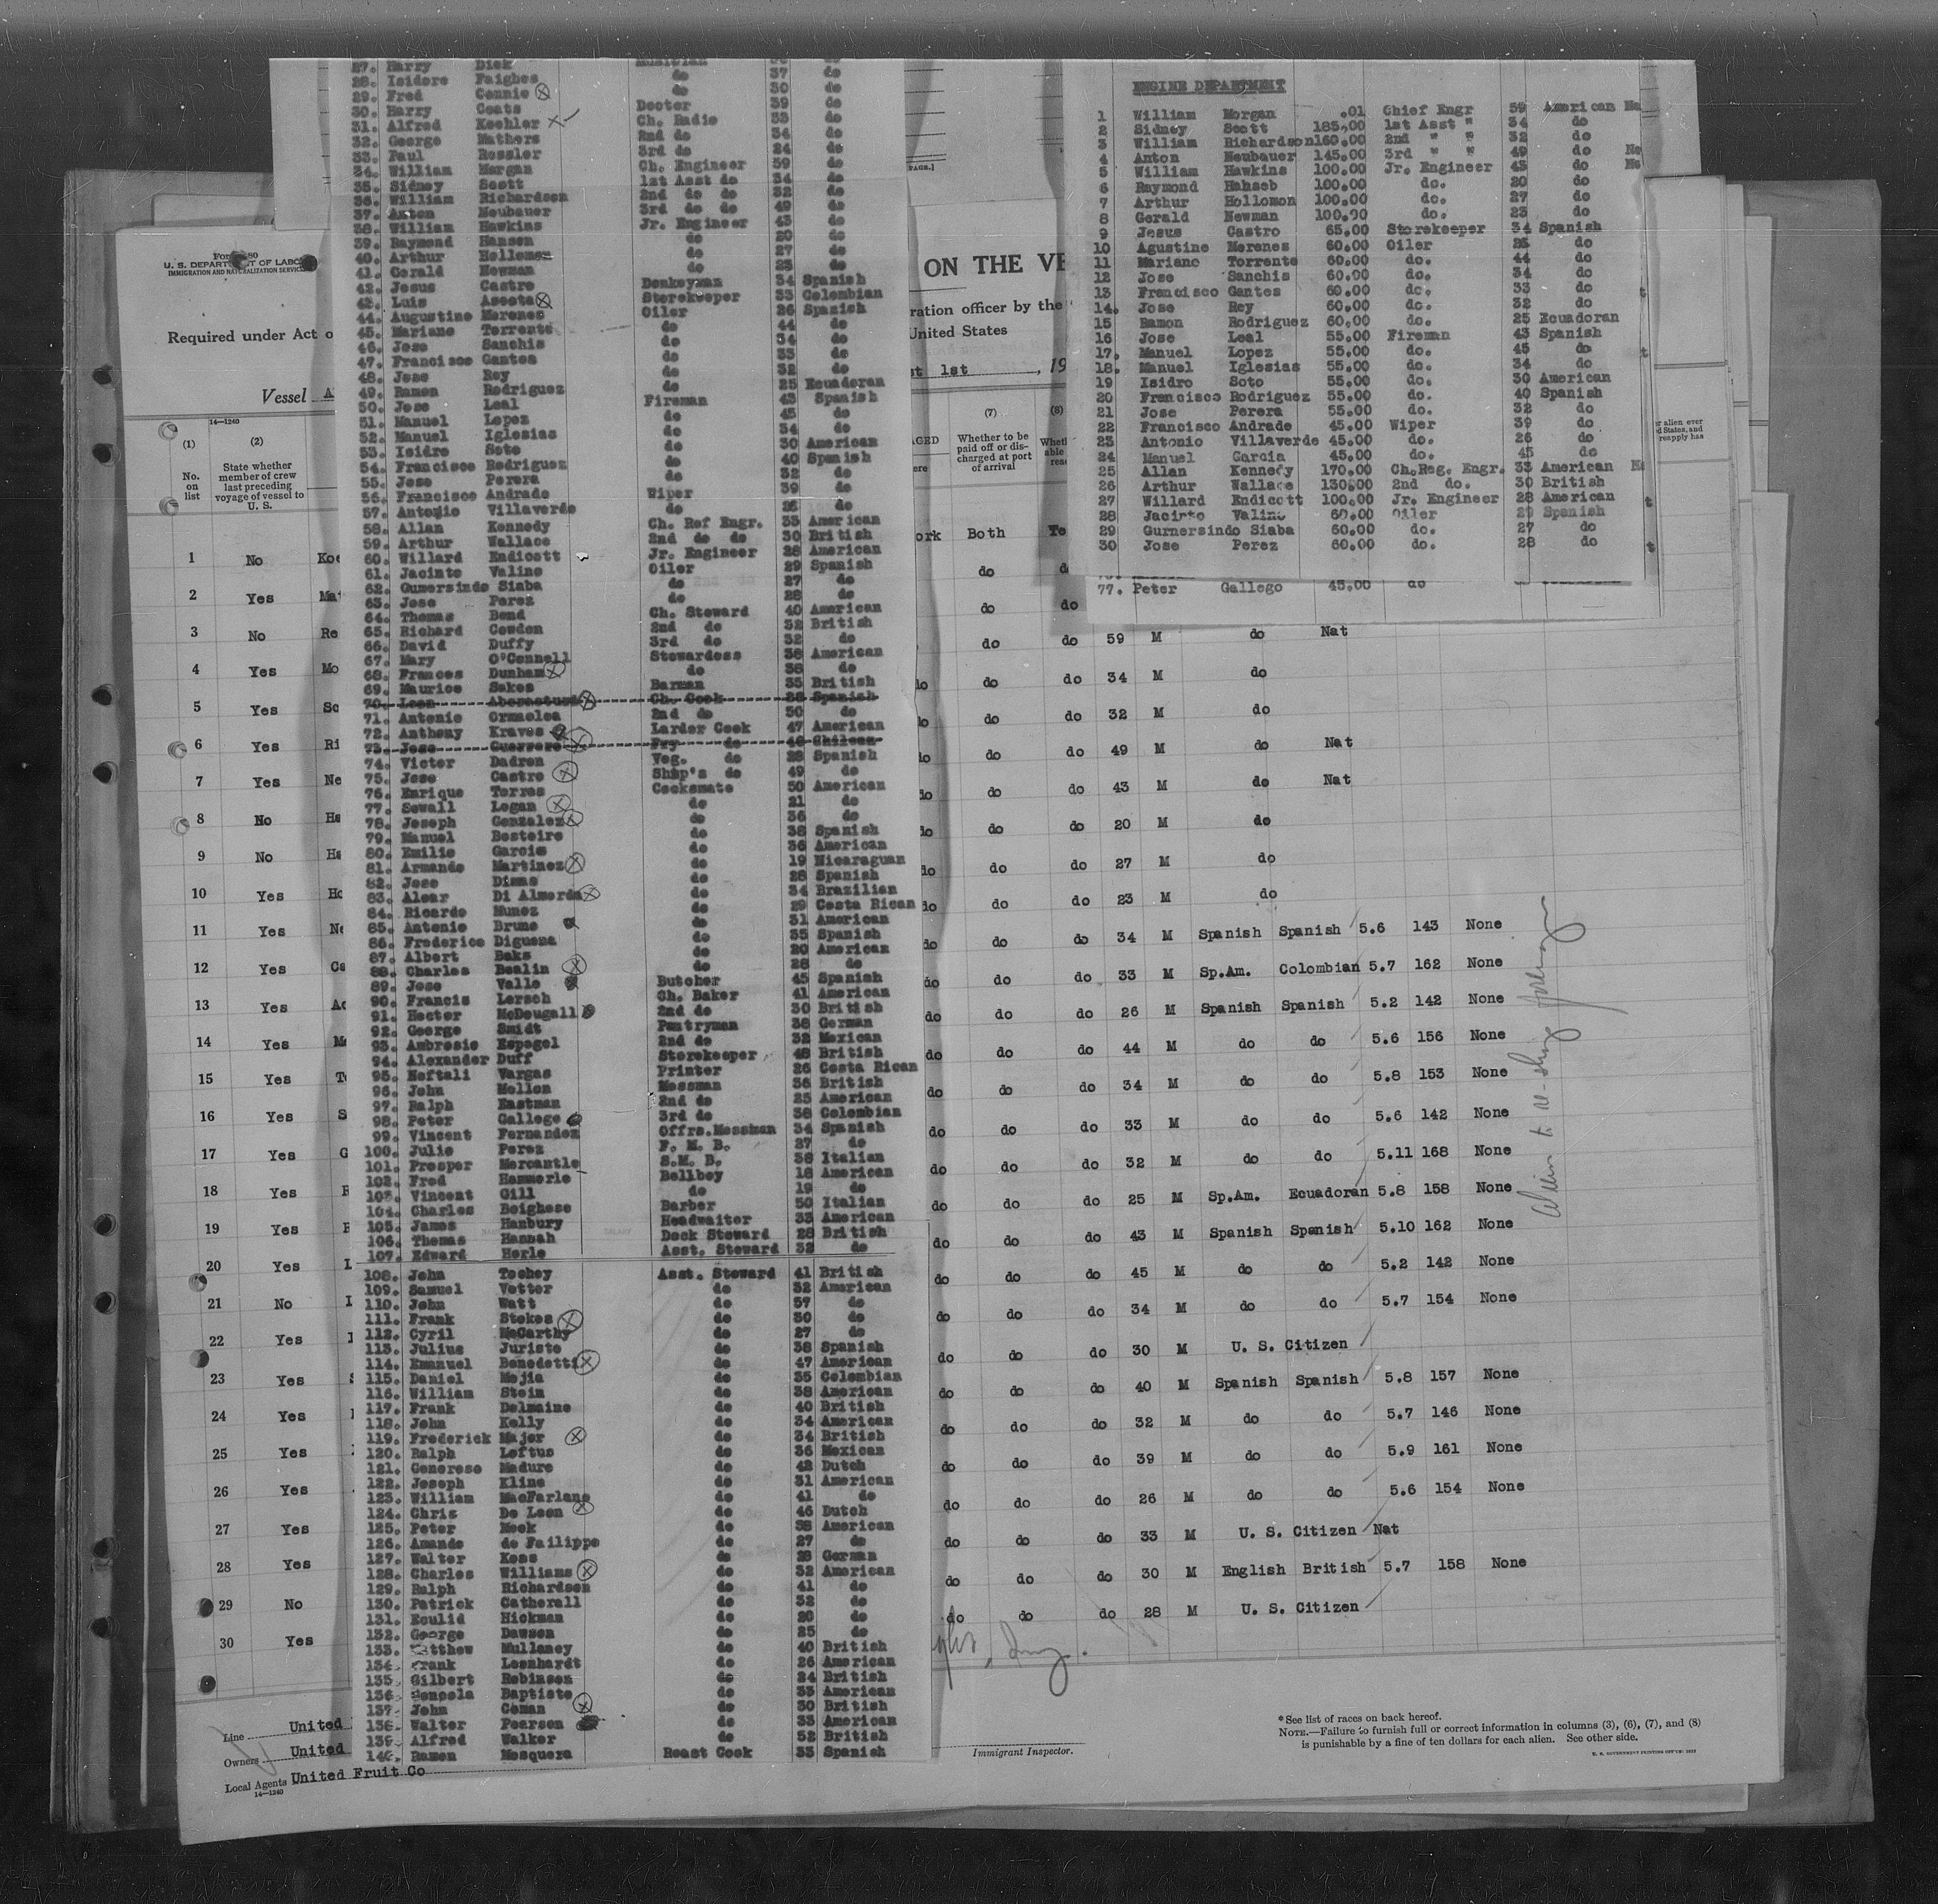 27. Harry Dick Musician 36 do
28. Isidore Faighes do 37 do
29. Fred Connie do 30 do
30. Harry Coats Docter 39 do
31. Alfred Koehler Ch. Radio 33 do
32. George Mathers 2nd do 34 do
33. Paul Ressler 3rd do 24 do
34. William Morgan Ch. Engineer 59 do
35. Sidney Scott 1st Asst do 34 do
36. William Richardson 2nd do do 32 do
37. Anton Neubauer 3rd do do 49 do
38. William Hawkins Jr. Engineer 43 do
39. Raymond Hansen do 20 do
40. Arthur Holloman do 27 do
41. Gerald Newman do 23 do
42. Jesus Castro Donkeyman 34 Spanish
43. Luis Acosta Storekeeper 33 Colombian
44. Augustine Morenes Oiler 26 Spanish
45. Mariano Torrente do 44 do
46. Jose Sanchis do 34 do
47. Francisco Gantes do 33 do
48. Jose Rey do 32 do
49. Ramon Rodriguez do 25 Ecuadoran
50. Jose Leal Fireman 43 Spanish
51. Manuel Lopez do 45 do
52. Manuel Iglesias do 34 do
53. Isidro Soto do 30 American
54. Francisco Rodriguez do 40 Spanish
55. Jose Perera do 32 do
56. Francisco Andrade Wiper 39 do
57. Antonio Villaverde do 26 do
58. Allan Kennedy Ch. Ref Engr. 33 American
59. Arthur Wallace 2nd do do 30 British
60. Willard Endicott Jr. Engineer 28 American
61. Jacinto Valino Oiler 29 Spanish
62. Gumersindo Siaba do 27 do
63. Jose Perez do 28 do
64. Thomas Bond Ch. Steward 40 American
65. Richard Cowden 2nd do 32 British
66. David Duffy 3rd do 32 do
67. Mary O'Connell Stewardess 38 American
68. Frances Dunham do 38 do
69. Maurice Sakes Barman 35 British
70. Leon Ch. Cook 38 Spanish
71. Antonio Ormaolea 2nd do 50 do
72. Anthony Kraves Larder Cook 47 American
73. Jose Guerrero Fry do 46 Chilean
74. Victor Dadron Veg. do 28 Spanish
75. Jose Castro Ship's do 49 do
76. Enrique Torres Cooksmate 50 American
77. Sewall Logan do 21 do
78. Joseph Gonzalez do 36 do
79. Manuel Besteiro do 38 Spanish
80. Emilio Garcia do 36 American
81. Armando Martinez do 19 Nicaraguan
82. Jose Dimas do 28 Spanish
83. Alcar Di Almerda do 34 Brazilian
84. Ricardo Munoz do 29 Costa Rican
85. Antonio Bruno do 31 American
86. Frederico Diguena do 35 Spanish
87. Albert Baks do 20 American
88. Charles Bealin do 28 do
89. Jose Valle Butcher 45 Spanish
90. Francis Lersch Ch. Baker 41 American
91. Hector McDougall 2nd do 30 British
92. George Smidt Pantryman 38 German
93. Ambrosio Espogel 2nd do 32 Mexican
94. Alexander Duff Storekeeper 48 British
95. Neftali Vargas Printer 26 Costa Rican
96. John Mellon Messman 36 British
97. Ralph Eastman 2nd do 25 American
98. Peter Gallego 3rd do 38 Colombian
99. Vincent Fernandez Offrs.Messman 34 Spanish
100. Julio Perez F. M. B. 27 do
101. Prosper Mercantle S.M. B. 38 Italian
102. Fred Hammerle Bellboy 18 American
103. Vincent Gill do 19 do
104. Charles Boighese Barber 50 Italian
105. James Hanbury Headwaiter 33 American
106. Thomas Hannah Deck Steward 28 British
107. Edward Herle Asst. Steward 32 do
108. John Toohey Asst. Steward 41 British
109. Samuel Vetter do 32 American
110. John Watt do 57 do
111. Frank Stokes do 30 do
112. Cyril McCarthy do 27 do
113. Julius Juriste do 38 Spanish
114. Emanuel Benedetti do 47 American
115. Daniel Mejia do 35 Colombian
116. William Stein do 38 American
117. Frank Delmaine do 40 British
118. John Kelly do 34 American
119. Frederick Major do 34 British
120. Ralph Loftus do 36 Mexican
121. Generoso Maduro do 42 Dutch
122. Joseph Kline do 31 American
123. William MacFarlane do 41 do
124. Chris De Leon do 46 Dutch
125. Peter Mook do 38 American
126. Amando de Failippo do 27 do
127. Walter Koss do 28 German
128. Charles Williams do 32 American
129. Ralph Richardson do 41 do
130. Patrick Catherall do 32 do
131. Eculid Hickman do 20 do
132. George Dawson do 25 do
133. Matthew Mullaney do 40 British
134. Frank Leonhardt do 26 American
135. Gilbert Robinson do 24 British
136. Baptiste do 33 American
137. John Coman do 30 British
138. Walter Pearson do 33 American
139. Alfred Walker do 52 British
140. Ramon Mosquera Roast Cook 33 Spanish
ENGINE DEPARTMENT
1 William Morgan .01 Chief Engr 59 American Na
2 Sidney Scott 185.00 1st Asst " 34 do
3 William Richardson 160.00 2nd " " 32 do
4 Anton Neubauer 145.00 3rd " " 49 do Na
5 William Hawkins 100.00 Jr. Engineer 45 do Na
6 Raymond Hahseb 100.00 do. 20 do
7 Arthur Hollomon 100.00 do. 27 do
8 Gerald Newman 100.00 do. 23 do
9 Jesus Castro 65.00 Storekeeper 34 Spanish
10 Agustine Morenes 60.00 Oiler 26 do
11 Mariano Torrente 60.00 do. 44 do
12 Jose Sanchis 60.00 do. 34 do
13 Francisco Gantes 60.00 do. 33 do
14. Jose Rey 60.00 do. 32 do
15 Ramon Rodriguez 60.00 do. 25 Ecuadoran
16 Jose Leal 55.00 Fireman 43 Spanish
17. Manuel Lopez 55.00 do. 45 do
18. Manuel Iglesias 55.00 do. 34 do
19 Isidro Soto 55.00 do. 30 American
20 Francisco Rodriguez 55.00 do. 40 Spanish
21 Jose Perera 55.00 do. 32 do
22 Francisco Andrade 45.00 Wiper 39 do
23 Antonio Villaverde 45.00 do. 26 do
24 Manuel Garcia 45.00 do. 45 do
25 Allan Kennefy 170.00 Ch.Reg. Engr. 33 American
26 Arthur Wallace 130.00 2nd do. 30 British
27 Willard Endicott 100.00 Jr. Engineer 28 American
28 Jacinto Valino 60.00 Oiler 29 Spanish
29 Gurnersindo Siaba 60.00 do. 27 do
30 Jose Perez 60.00 do. 28 do
77. Peter Gallego 45.00 do
U. S. DEPARTMENT OF LABOR
IMMIGRATION AND NATURALIZATION SERVICE
ON THE VE
Required under Act o
ration officer by the
United States
Vessel A
st 1st , 19
14—1240
(1) (2) (7) (8)
No. on list
State whether member of crew last preceding voyage of vessel to U. S.
Whether to be paid off or discharged at port of arrival
1 No Koe ork Both
2 Yes Mat do
3 No Re do do
4 Yes Mo do do 59 M do Nat
5 Yes Sc do do do 34 M do
6 Yes Ri do do do 32 M do
7 Yes Ne do do do 49 M do Nat
8 No Ha do do do 43 M do Nat
9 No Ha do do do 20 M do
10 Yes Ho do do do 27 M do
11 Yes Ne do do do 23 M do
12 Yes Ca do do do 34 M Spanish Spanish 5.6 143 None
13 Yes Ac do do do 33 M Sp.Am. Colombian 5.7 162 None
14 Yes Mo do do do 26 M Spanish Spanish 5.2 142 None
15 Yes T do do do 44 M do do 5.6 156 None
16 Yes S do do do 34 M do do 5.8 153 None
17 Yes G do do do 33 M do do 5.6 142 None
18 Yes R do do do 32 M do do 5.11 168 None
19 Yes do do do 25 M Sp.Am. Ecuadoran 5.8 158 None
20 Yes L do do do 43 M Spanish Spanish 5.10 162 None
21 No do do do 45 M do do 5.2 142 None
22 Yes do do do 34 M do do 5.7 154 None
23 Yes do do do 30 M U. S. Citizen
24 Yes do do do 40 M Spanish Spanish 5.8 157 None
25 Yes do do do 32 M do do 5.7 146 None
26 Yes do do do 39 M do do 5.9 161 None
27 Yes do do do 26 M do do 5.6 154 None
28 Yes do do do 33 M U. S. Citizen Nat
29 No do do do 30 M English British 5.7 158 None
30 Yes do do do 28 M U. S. Citizen
Line United
Owners United
Local Agents United Fruit Co
14—1240
Immigrant Inspector.
*See list of races on back hereof.
NOTE.—Failure to furnish full or correct information in columns (3), (6), (7), and (8)
is punishable by a fine of ten dollars for each alien. See other side.